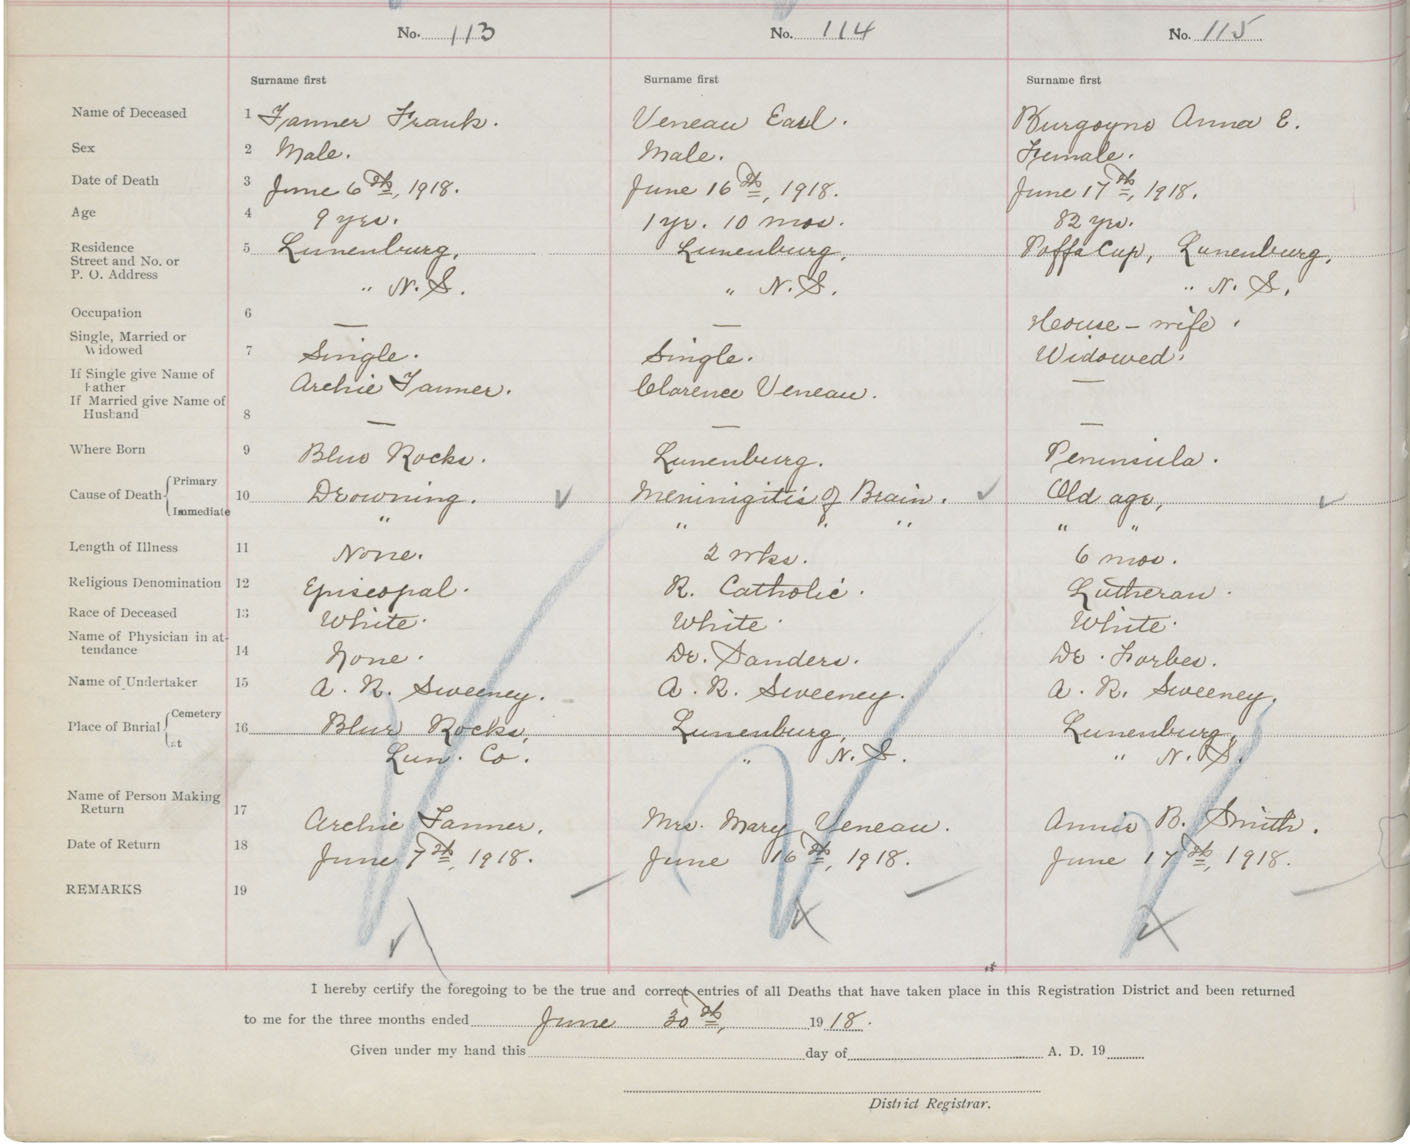 No. 113 No. 114 No. 115
Surname first Surname first Surname first
Name of Deceased 1 Tanner Frank. Veneau Earl. Burgoyne Anna E.
Sex 2 Male. Male. Female.
Date of Death 3 June 6th, 1918. June 16th, 1918. June 17th, 1918.
Age 4 9 yrs. 1 yr. 10 mos. 82 yrs.
Residence 5 Lunenburg, Lunenburg, Poffs Cup, Lunenburg,
Street and No. or
P. O. Address " N. S. " N. S. " N. S.
Occupation 6 — — House-wife.
Single, Married or
Widowed 7 Single. Single. Widowed.
If Single give Name of
Father Archie Tanner. Clarence Veneau. —
If Married give Name of
Husband 8 — —
Where Born 9 Blue Rocks. Lunenburg. Peninsula.
Cause of Death Primary
10 Drowning. Meninigitis of Brain. Old age,
Immediate " " " " " "
Length of Illness 11 None. 2 wks. 6 mos.
Religious Denomination 12 Episcopal. R. Catholic. Lutheran.
Race of Deceased 13 White. White. White.
Name of Physician in at-
tendance 14 None. Dr. Sanders. Dr. Forbes.
Name of Undertaker 15 A. R. Sweeney. A. R. Sweeney. A. R. Sweeney,
Place of Burial Cemetery
16 Blue Rocks, Lunenburg, Lunenburg,
at Lun. Co. " N. S. " N. S.
Name of Person Making
Return 17 Archie Tanner. Mrs. Mary Veneau. Annie B. Smith.
Date of Return 18 June 7th, 1918. June 16th, 1918. June 17th, 1918.
REMARKS 19
I hereby certify the foregoing to be the true and correct entries of all Deaths that have taken place in this Registration District and been returned
to me for the three months ended June 30th, 1918.
Given under my hand this day of A. D. 19
District Registrar.